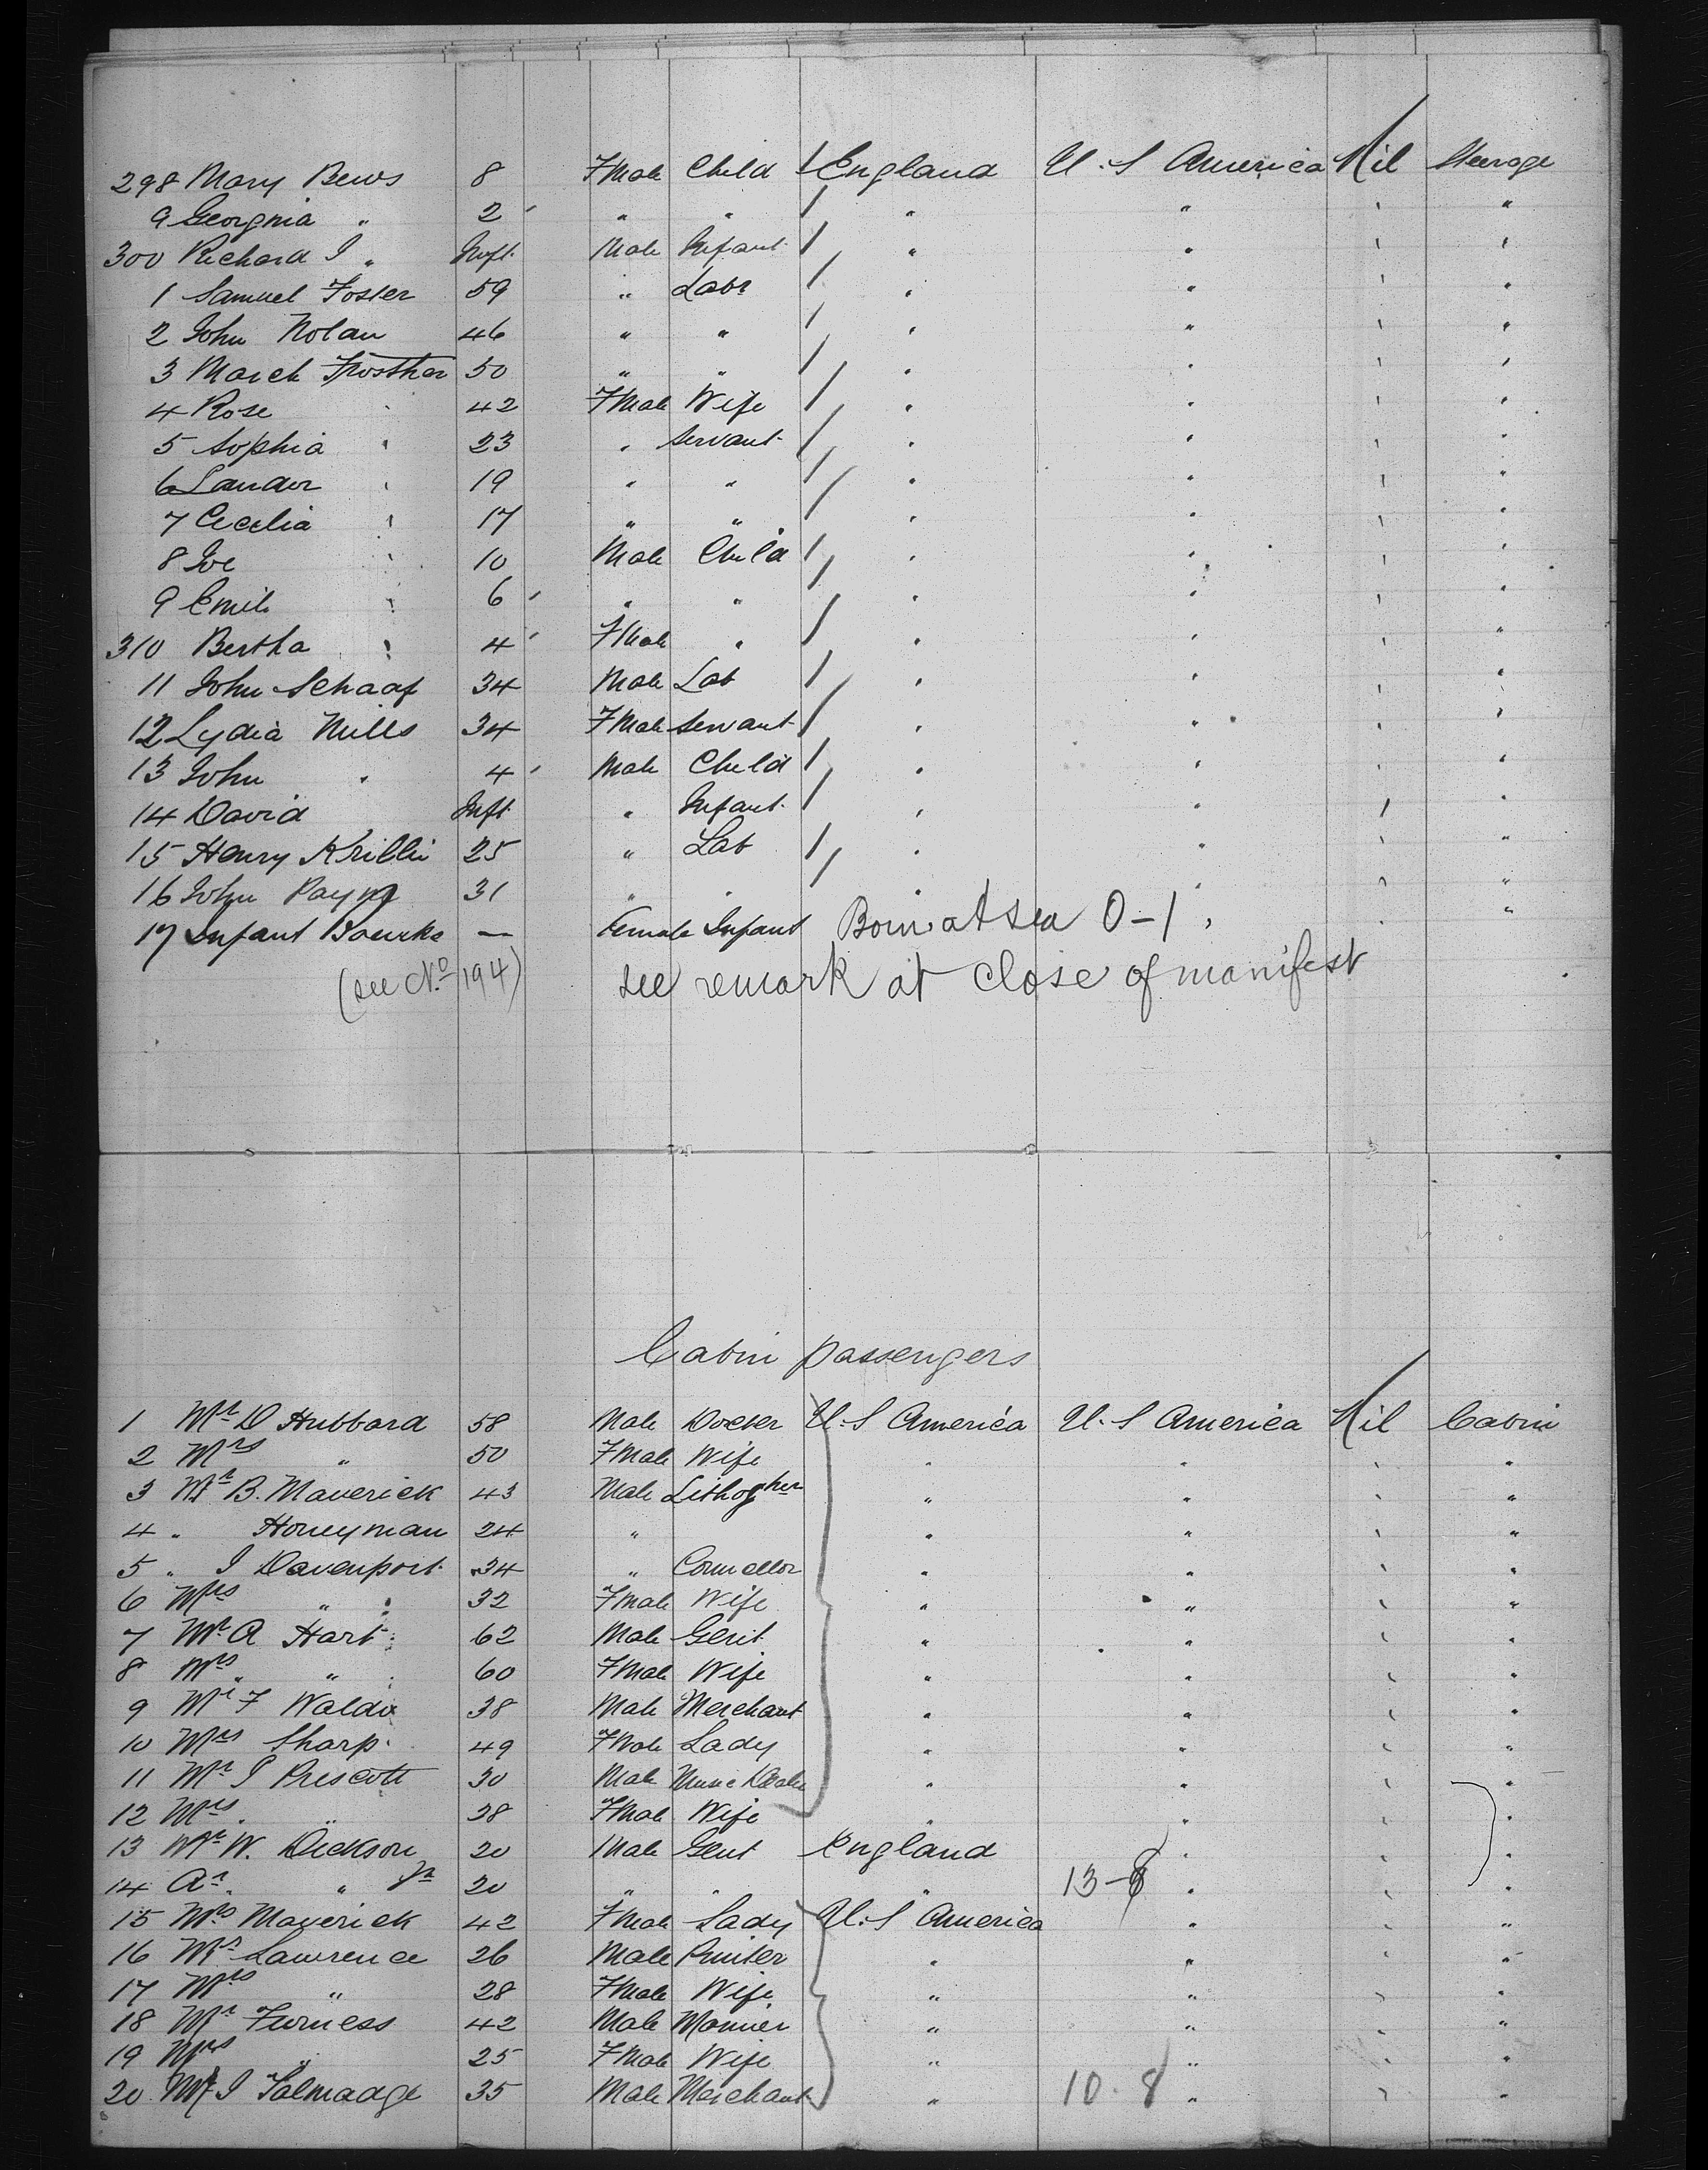 298 Mary Bews 8 FMale Child England U.S America Nil Steerage
9 Georgnia " 2 " " " " " "
300 Richard J " Inft. Male Infant " " " "
1 Samuel Foster 59 " Labr " " " "
2 John Nolan 46 " " " " " "
3 March 50 " " " " " "
4 Rose " 42 FMale Wife " " " "
5 Sophia " 23 " Servant " " " "
6 " 19 " " " " " "
7 Cecelia " 17 " " " " " "
8 Joe " 10 Male Child " " " "
9 Emil " 6 " " " " " "
310 Bertha " 4 FMale " " " " "
11 John Schaaf 34 Male Lab " " " "
12 Lydia Mills 34 FMale Servant " " " "
13 John " 4 Male Child " " " "
14 David " Inft " Infant " " " "
15 Henry 25 " Lab " " " "
16 John Payng 31 " " " " " "
17 Infant Bourke — Female Infant Born at sea 0-1 " " "
(see No 194) see remark at close of manifest
Cabin passengers
1 Mr D Hubbard 58 Male Docter U.S America U.S America Nil Cabin
2 Mrs " 50 FMale Wife " " " "
3 Mr B. Maverick 43 Male Lithogher " " " "
4 " Honeyman 24 " " " " "
5 " J Davenport 34 " Councellor " " " "
6 Mrs " 32 FMale Wife " " " "
7 Mr A Hart 62 Male Gent " " " "
8 Mrs " " 60 FMale Wife " " " "
9 Mr F Waldo 38 Male Merchant " " " "
10 Mrs Sharp 49 FMale Lady " " " "
11 Mr J Prescott 30 Male Music Dealer " " " "
12 Mrs " 28 FMale Wife " " " "
13 Mr W. Dickson 20 Male Gent England " " "
14 Ar " Jr 20 " " " 13-8 " " "
15 Mrs Maverick 42 FMale Lady U.S America " " "
16 Mr Lawrence 26 Male Printer " " " "
17 Mrs " 28 FMale Wife " " " "
18 Mr Furness 42 Male " " " "
19 Mrs " 25 FMale Wife " " " "
20 Mr J Talmadge 35 Male Merchant " 10.8 " " "